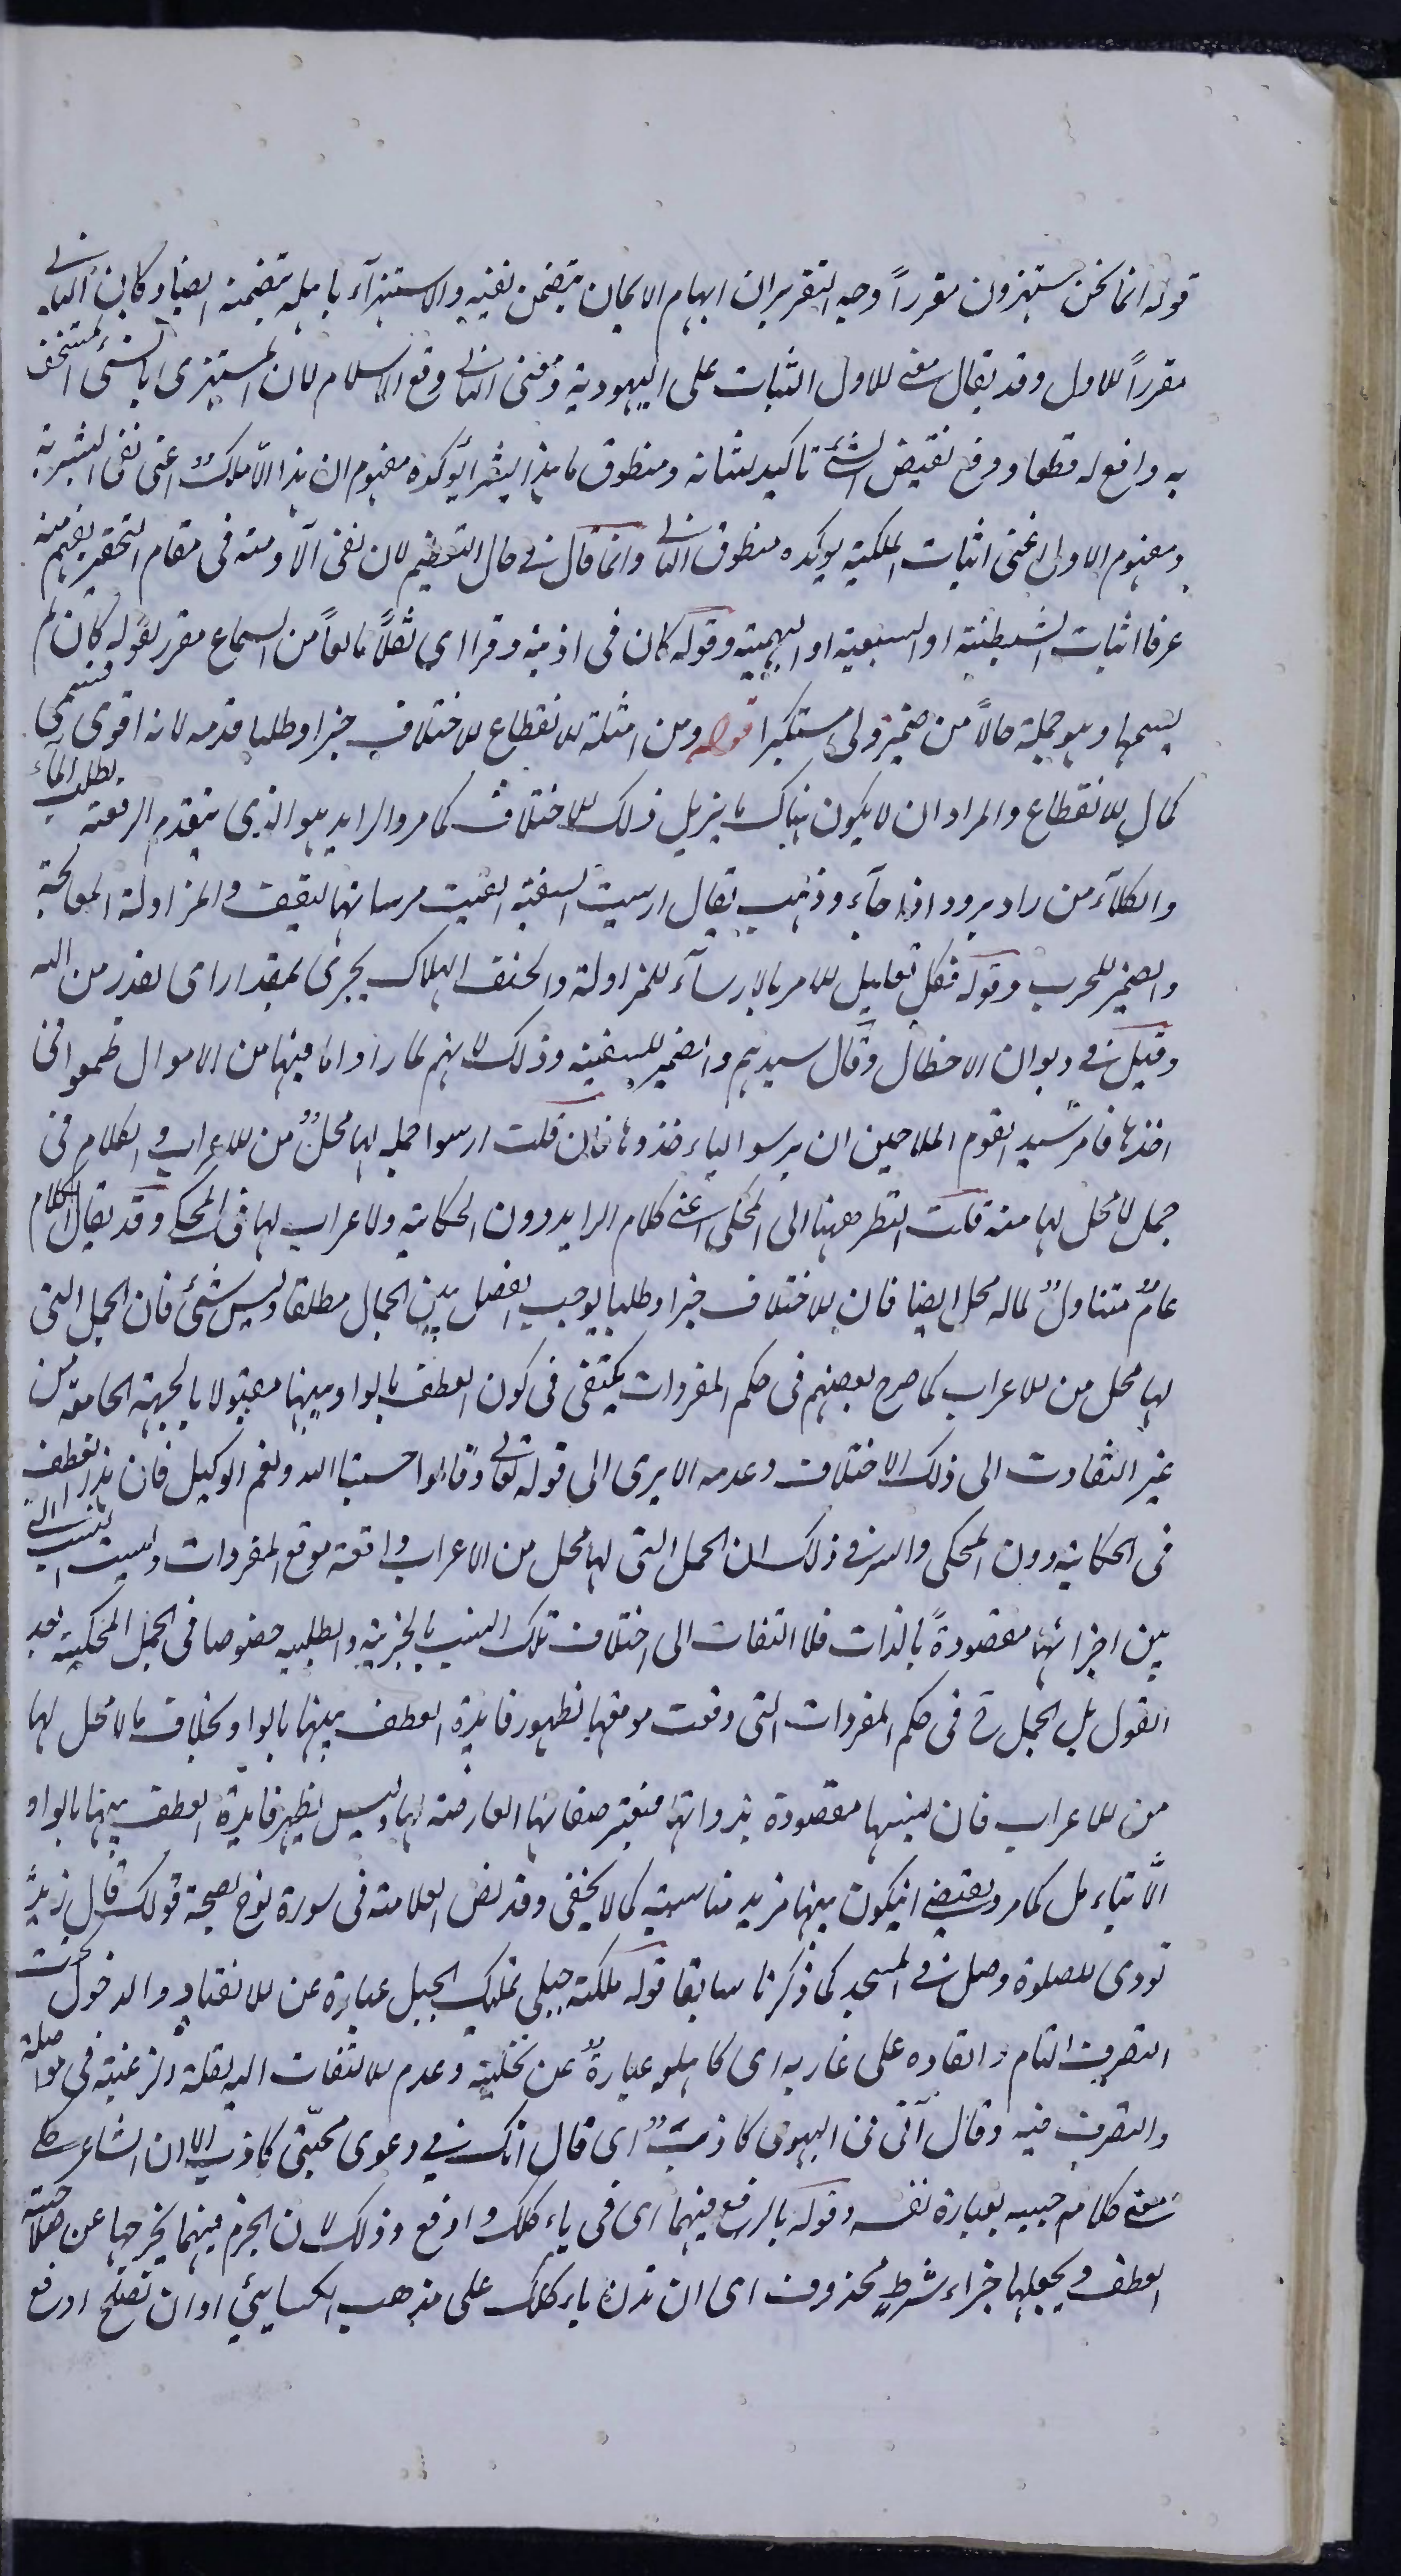 قوله انما نحن مستهزون مقرراً وجه التقرير ان ايهام الايمان يتضمن نفيه والاستهزآء باهله يتضمنه ايضا وكان الثانى
مقرراً للاول وقد يقال معنى الاول الثبات على اليهودية ومعنى الثانى رفع الاسلام لان المستهزى بالشئ المستخف
به دافع له قطعا ورفع نقيض الشئ تاكيد لثباته ومنطوق ما هذا بشراً يوكده مفهوم ان هذا الا ملك اعنى نفى البشرية
ومفهوم الاول اعنى اثبات الملكية يوكده منطوق الثانى وانما قال فى حال التعظيم لان نفى الآدمية فى مقام التحقير يفهم منه
عرفا اثبات الشيطنية او السبعية او البهيمية وقوله كان فى اذنيه وقرا اى ثقلاً مانعاً من السماع مقرر لقوله كان لم
يسمعها وهو جملة حالاً من ضمير ولى مستكبرا قوله ومن امثلة الانقطاع للاختلاف خبرا وطلبا قدمه لانه اقوى قسمى
كمال الانقطاع والمراد ان لا يكون هناك ما يزيل ذلك الاختلاف كما مر والرايد هو الذى يتقدم الرفقة لطلب المآء
والكلآء من راد يرود اذا جآء وذهب يقال ارسيت السفينة القيت مرساتها لتقف والمزاولة المعالجة
والضمير للحرب وقوله فكل تعليل للامر بالارسآء للمزاولة والحتف الهلاك يجرى بمقدار اى بقدر من الله
وقيل فى ديوان الاخطل وقال سيدهم والضمير للسفينة وذلك لانهم لما راوا ما فيها من الاموال طمعوا فى
اخذها فامر سيد القوم الملاحين ان يرسوا ليأخذوها فان قلت ارسوا جملة لها محل من الاعراب والكلام فى
جمل لا محل لها منه قلت النظر ههنا الى المحكى اعنى كلام الرايد دون الحكاية ولا اعراب لها فى المحكى وقد يقال الكلام
عامٌ متناولٌ لما له محل ايضا فان الاختلاف خبرا وطلبا يوجب الفصل بين الجمل مطلقا وليس بشئ فان الجمل التى
لها محل من الاعراب كما صرح بعضهم فى حكم المفردات يكتفى فى كون العطف بالواو بينها مقبولا بالجهة الجامعة من
غير التفات الى ذلك الاختلاف وعدمه الا يرى الى قوله تعالى وقالوا حسبنا الله ونعم الوكيل فان هذا العطف
فى الحكاية دون المحكى والسر فى ذلك ان الجمل التى لها محل من الاعراب واقعة موقع المفردات وليست النسب التى
بين اجزائها مقصودةً بالذات فلا التفات الى اختلاف تلك النسب بالخبرية والطلبية خصوصا فى الجمل المحكية بعد
القول بل الجمل ح فى حكم المفردات التى وقعت موقعها فظهور فايدة العطف بينها بالواو بخلاف ما لا محل لها
من الاعراب فان نسبها مقصودة بذواتها فيعتبر صفاتها العارضة لها وليس يظهر فايدة العطف بينها بالواو
الّا بتاءمل كما مر ويقتضى ان يكون بينها مزيد مناسبة كما لا يخفى وقد نص العلامة فى سورة نوح بصحة قولك قال زيدٌ
نودى للصلوة وصل فى المسجد كما ذكرنا سابقا قوله ملكته حبلى تمليك الحبل عبارة عن الانقياد والدخول تحت
التصرف التام والقاوه على غاربه اى كاهله عبارةٌ عن تخليته وعدم الالتفات اليه لقلة الرغبة فى مواصلته
والتصرف فيه وقال انى فى الهوى كاذبٌ اى قال انك فى دعوى محبّتى كاذب الا ان الشاعر حكى
معنى كلام حبيبه بعبارة نفسه وقوله بالرفع فيهما اى فى ياءكلك وارفع وذلك لان الجزم فيهما يخرجها عن صلاحية
العطف ويجعلها جزاء شرط محذوف اى ان تدن ياءكلك على مذهب الكسائى او ان تصلح ارفع